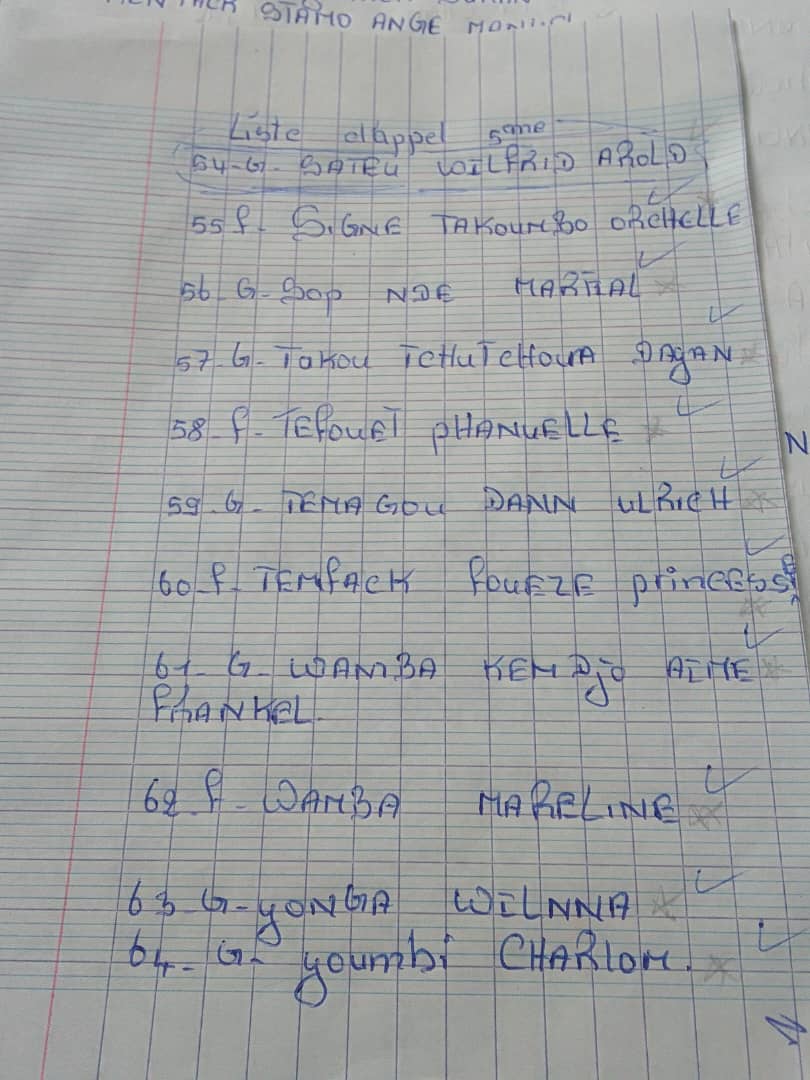 STAMO ANGE
Liste d'appel 5ème
54-G- SATEU WILFRID AROLD
55 f- SIGNE TAKOUMBO ORCHELLE
56 G- Sop NDE MARTIAL
57-G- TaKou TCHUTCHOUA DAgAN
58 f- TEfoUET pHANUELLE
59 G- TEMAGOU DANN ULRICH
60 f- TEMfACK foUEZE princESSE
61- G- WAMBA KEMDjo AIME
fRANKEL.
62 f- WAMBA MARELINE
63 G- yONGA WILNNA
64- G- youmbi CHARLOM.
N